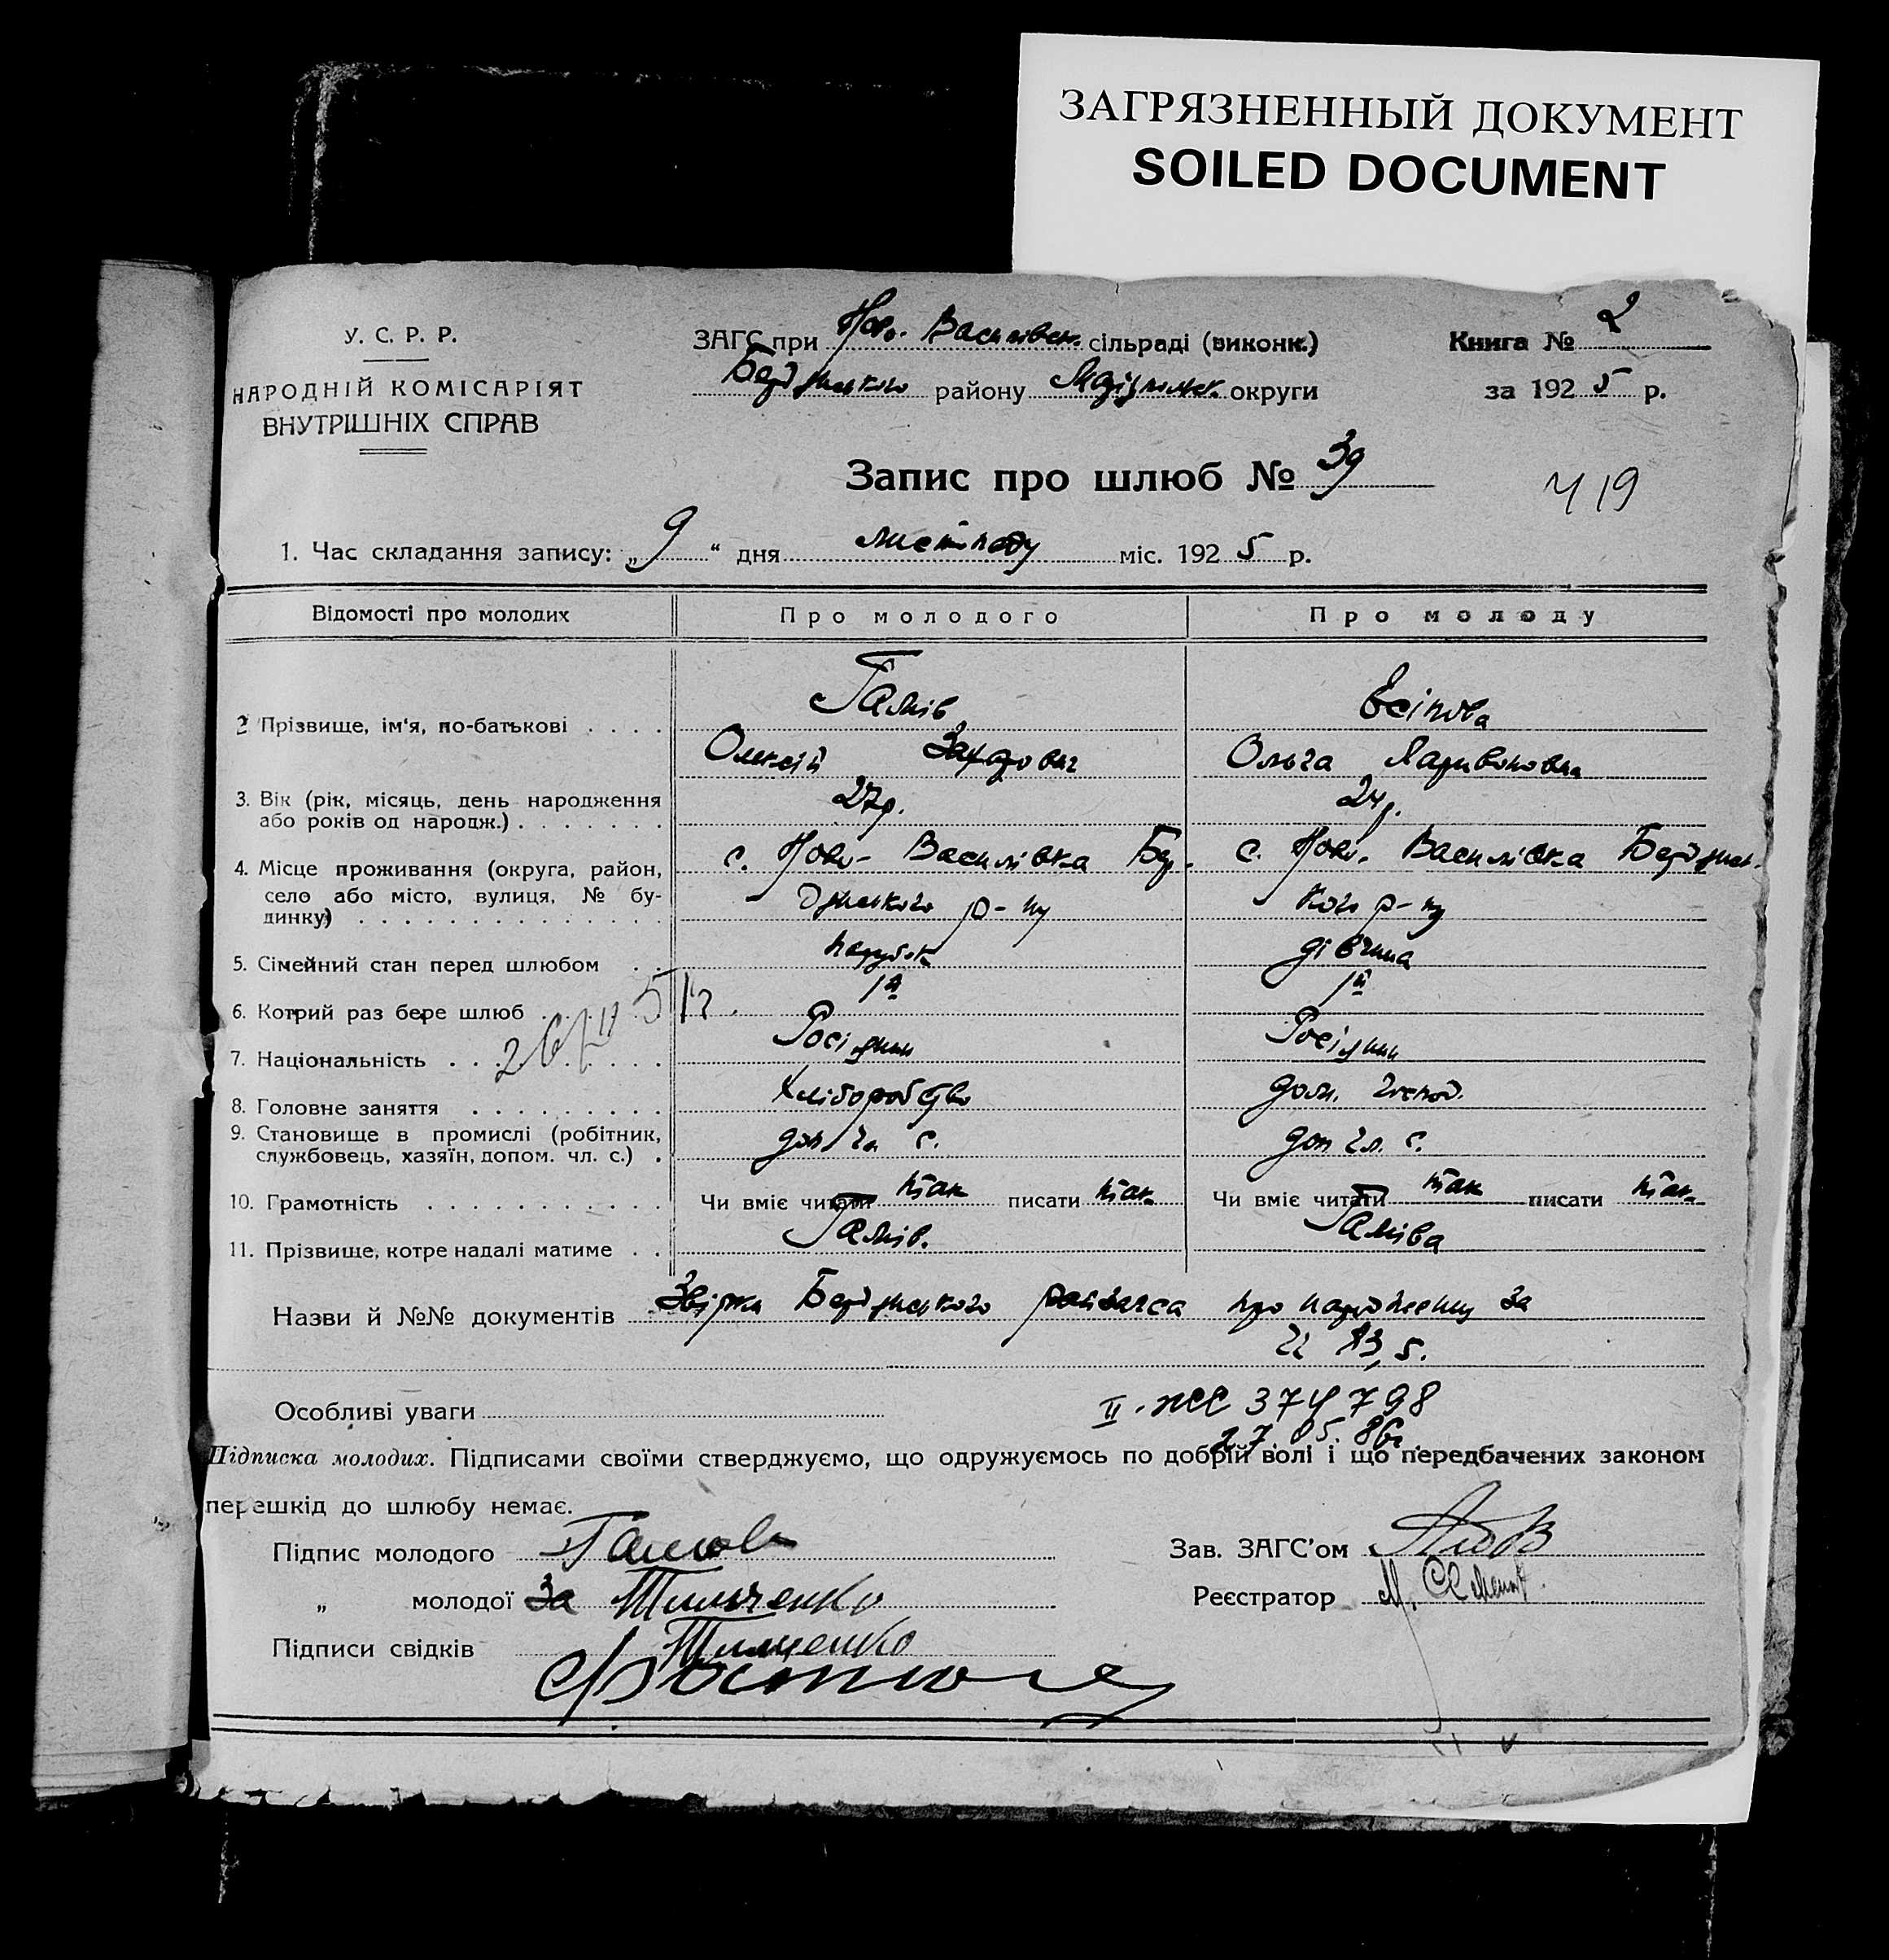 ЗАГРЯЗНЕННЫЙ ДОКУМЕНТ
SOILED DOCUMENT
У. С. Р. Р.
НАРОДНІЙ КОМІСАРІЯТ
ВНУТРІШНІХ СПРАВ
ЗАГС при Ново-Василівськ. сільраді (виконк.)
Бердянського району Маріупольск. округи
Книга № 2
за 1925 р.
Запис про шлюб № 39
419
1. Час складання запису: „9“ дня листопаду міс. 1925 р.
Відомості про молодих Про молодого Про молоду
Галів Есіпова
2 Прізвище, ім'я, по-батькові . . . .
Олексій Захарович Ольга Ларивоновна
3. Вік (рік, місяць, день народження
або років од народж.) . . . . . . . 27р. 24р.
4. Місце проживання (округа, район, с. Ново-Василівка Бер- с. Ново-Василівка Бердянсь-
село або місто, вулиця, № бу-
динку) дянського р-ну кого р-ну
5. Сімейний стан перед шлюбом . . парубок дівчина
6. Котрий раз бере шлюб 1й 1й
7. Національність Росіянин Росіянин
8. Головне заняття . . . . . . . . . Хліборобство дом. господ.
9. Становище в промислі (робітник,
службовець, хазяїн, допом. чл. с.) . доп чл с. доп чл. с.
10. Грамотність . . . . . . . . . . . Чи вміє читати так писати так Чи вміє читати так писати так
11. Прізвище, котре надалі матиме . . Галів. Галіва
Назви й №№ документів Бердянського райзагса про народження за
Особливі уваги
II. ЖС 374798
27.05.86г.
Підписка молодих. Підписами своїми стверджуємо, що одружуємось по добрій волі і що передбачених законом
перешкід до шлюбу немає.
Підпис молодого Галов
„ молодої За Тимченко
Підписи свідків Тимченко
Зав. ЗАГС'ом
Реєстратор М.